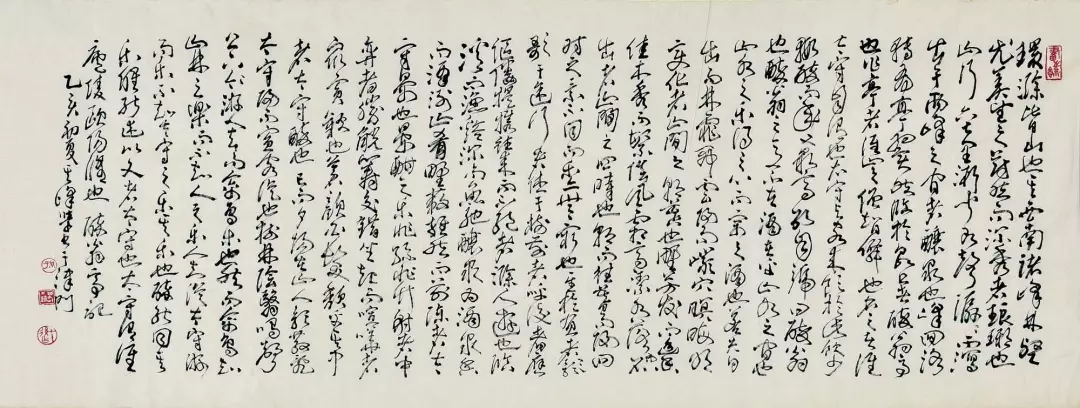 環滁皆山也其西南諸峰林壑
尤美望之蔚然而深秀者琅琊也
山行六七里漸聞水聲潺潺而瀉
出于兩峰之間者釀泉也峰回路
轉有亭翼然臨於泉上者醉翁亭
也作亭者誰山之僧智僊也名之者誰
太守自謂也太守與客來飲於此飲少
輒醉而年又最高故自號曰醉翁
也醉翁之意不在酒在乎山水之間也
山水之樂得之心而寓之酒也若夫日
出而林霏開雲歸而巖穴暝晦明
變化者山間之朝暮也野芳發而幽香
佳木秀而繁陰風霜高潔水落而石
出者山間之四時也朝而往暮而歸四
時之景不同而樂亦無窮也至於負者
歌于途行者休于樹前者呼後者應
傴僂提攜往來而不絕者滁人遊也臨
溪而漁溪深而魚肥釀泉為酒泉香
而酒洌山肴野蔌雜然而前陳者太
守宴也宴酣之樂非絲非竹射者中
弈者勝觥籌交錯坐起而諠譁者
眾賓歡也蒼顏白髮頹乎其中
者太守醉也已而夕陽在山人影散亂
太守歸而賓客從也樹林陰翳鳴聲
上下遊人去而禽鳥樂也然而禽鳥知
山林之樂而不知人之樂人知從太守游
而樂而不知太守之樂其樂也醉能同其
樂醒能述以文者太守也太守謂誰
廬陵歐陽修也 醉翁亭記
乙亥初夏 津門